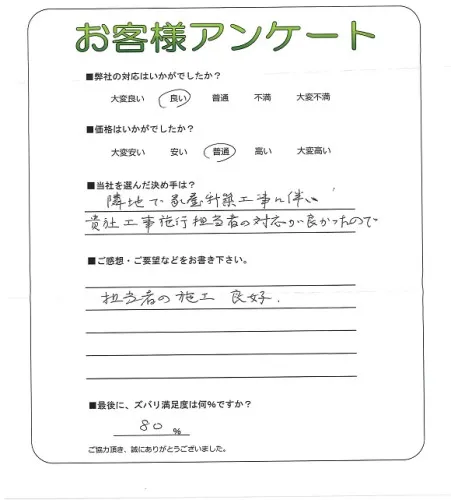 お客様アンケート
■弊社の対応はいかがでしたか?
大変良い 良い 普通 不満 大変不満
■価格はいかがでしたか?
大変安い 安い 普通 高い 大変高い
■当社を選んだ決め手は?
隣地で家屋新築工事に伴い
貴社工事施行担当者の対応が良かったので
■ご感想・ご要望などをお書き下さい。
担当者の施工 良好.
■最後に、ズバリ満足度は何%ですか?
80 %
ご協力頂き、誠にありがとうございました。